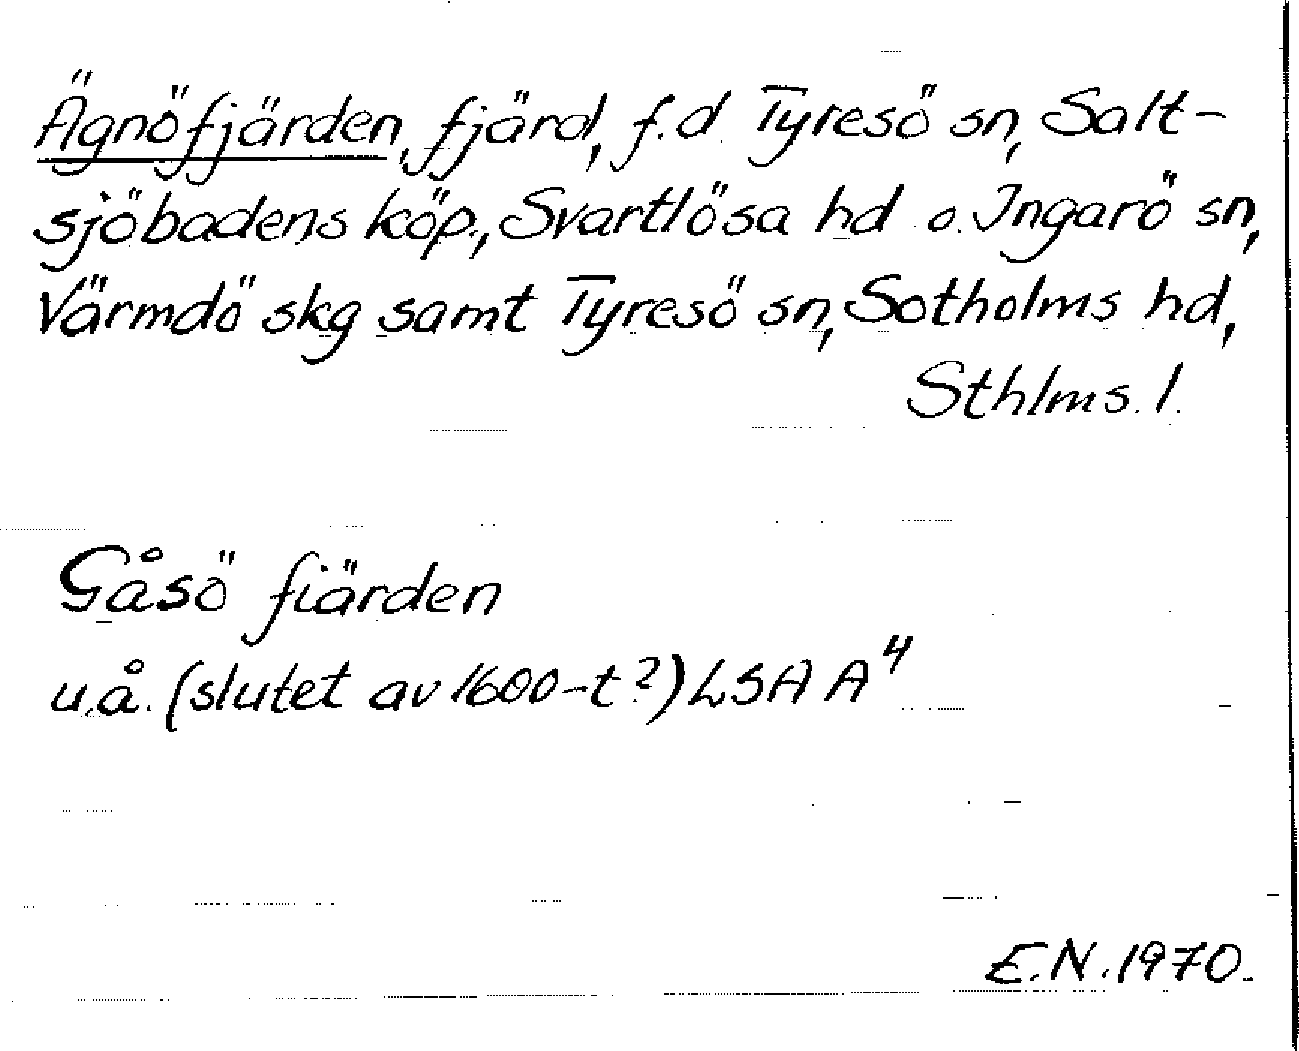 Ägnöfjärden, fjärd, f.d Tyresö sn, Salt-
sjöbadens köp., Svartlösa hd o. Ingarö sn,
Värmdö skg samt Tyresö sn, Sotholms hd,
Sthlms. l.
Gåsö fiärden
u.å. (slutet av 1600-t?) LSA A⁴
E.N. 1970.